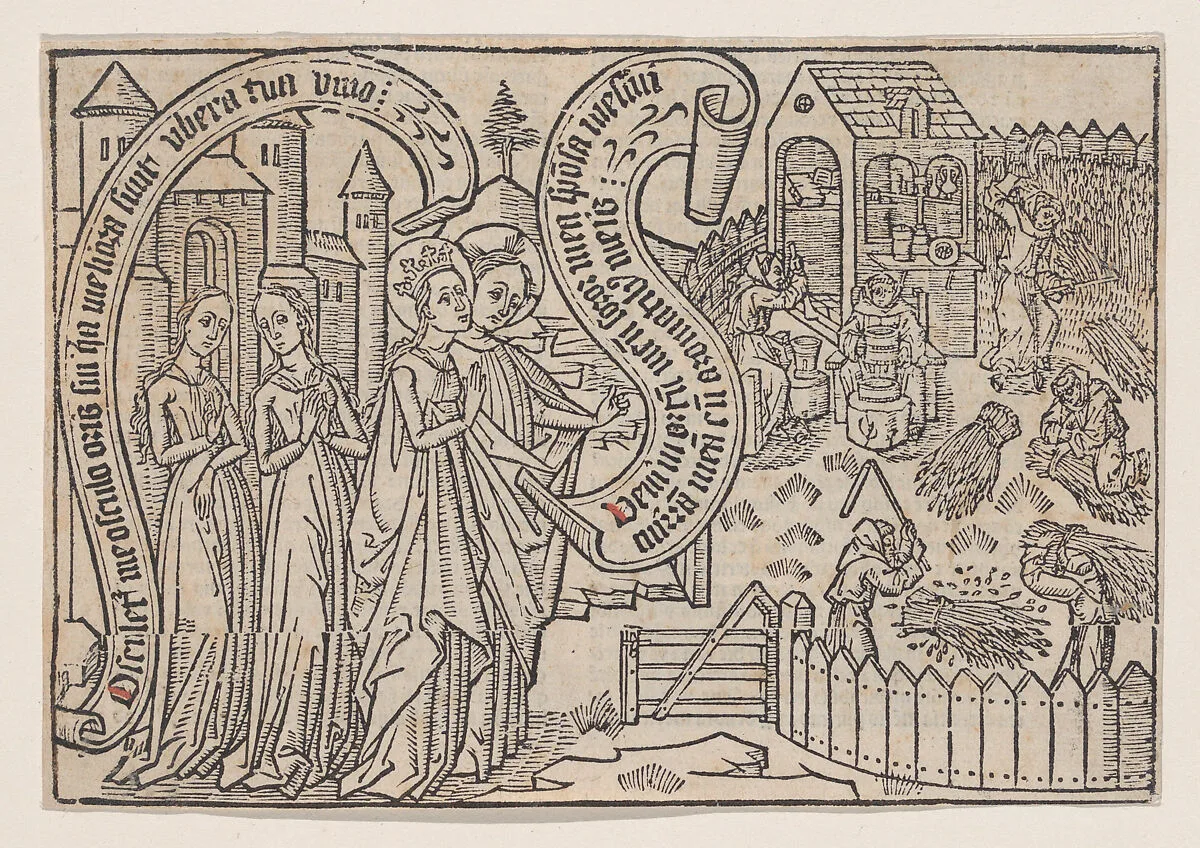 Osculet᷑ me osculo oris sui qꝛ meliora sunt vbera tua vino :
Veni in ortū meū soror mea spōsa messui
mirrā meā cū aromatibꝰ meis :